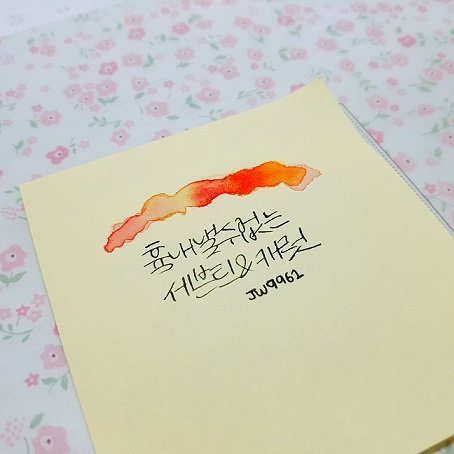 흉내낼수없는
세븐틴&캐럿
JW9961